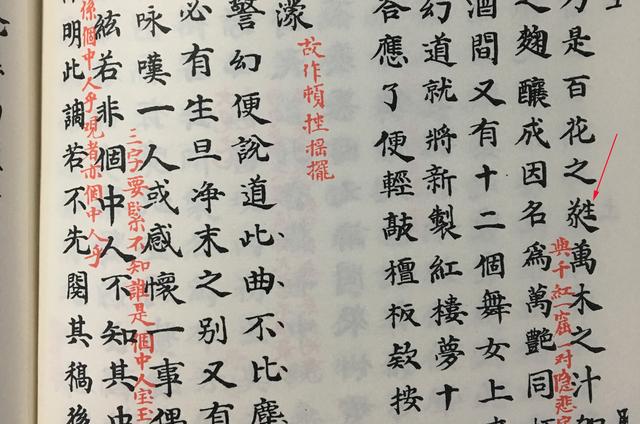 是百花之萬木之汁
與千紅一窟一对隐悲字
之麯釀成因名爲萬艷同
酒間又有十二個舞女上
幻道就將新製紅樓夢十
答應了便輕敲檀板欵按
故作頓挫摇擺
濛
警幻便說道此曲不比塵
必有生旦净末之别又有
咏嘆一人或感懷一事偶
三字要緊不知誰是個中人宝玉
若非個中人不知其中
係個中人乎观者亦個中人乎
明此調若不先閱其稿後